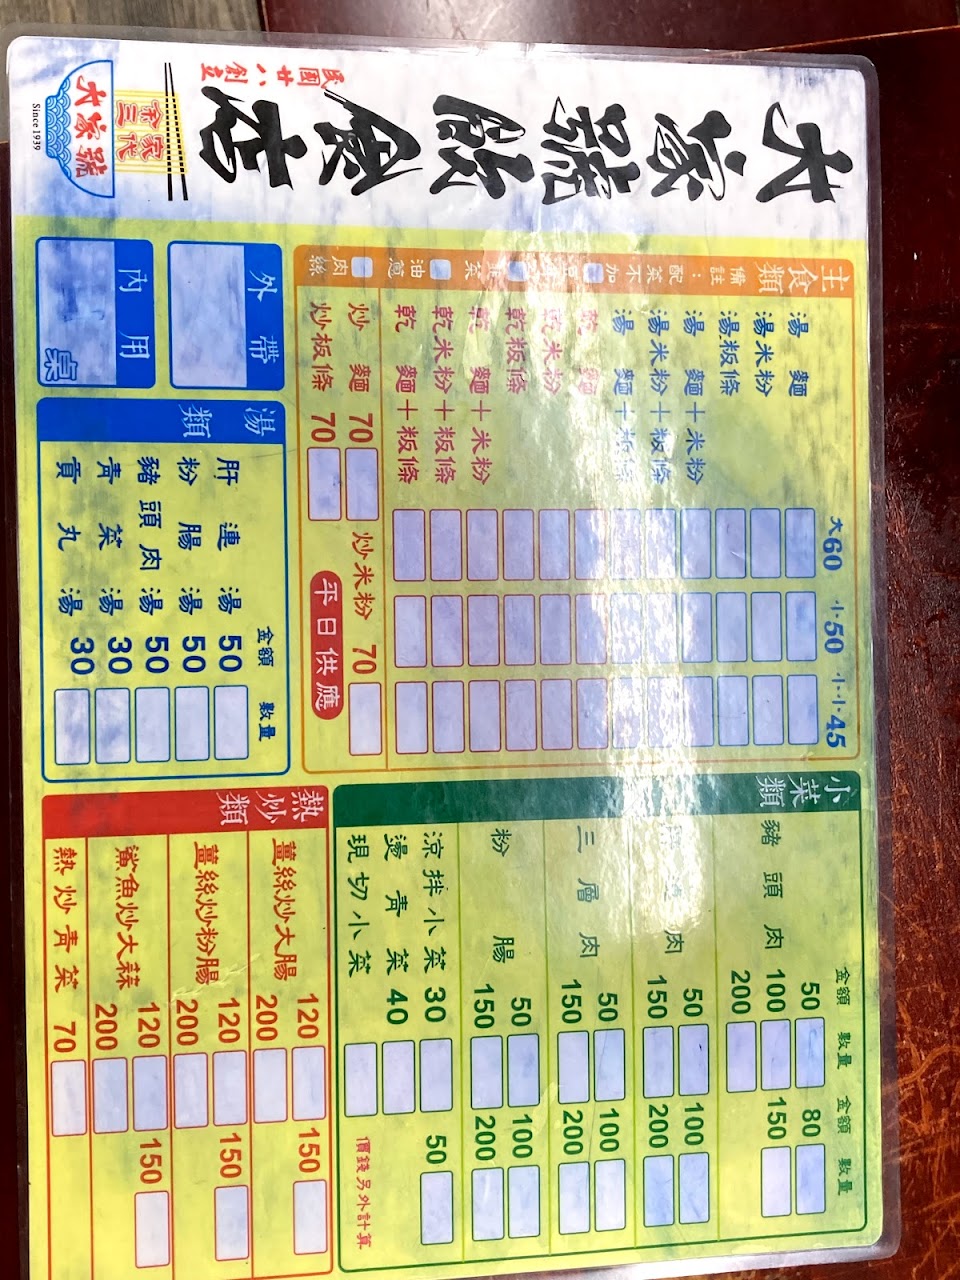 大家號飲食店
民國廿八創立
余家三代
大家號
Since 1939
主食類 備註:配菜不加 韭菜 油蔥 肉絲
大60 小50 小小45
湯麵
湯米粉
湯粄條
湯麵+米粉
湯米粉+粄條
湯麵+粄條
乾麵
乾米粉
乾粄條
乾麵+米粉
乾米粉+粄條
乾麵+粄條
炒麵 70 炒米粉 70
炒板條 70 平日供應
外帶
內用 桌
湯類
金額 數量
肝連湯 50
粉腸湯 50
豬頭肉湯 50
青菜湯 30
貢丸湯 30
小菜類
金額 數量 金額 數量
豬頭肉 50 80
100 150
200
連肉 50 100
150 200
三層肉 50 100
150 200
粉腸 50 100
150 200
涼拌小菜 30 50
燙青菜 40
現切小菜 價錢另外計算
熱炒類
薑絲炒大腸 120 150
200
薑絲炒粉腸 120 150
200
鯊魚炒大蒜 120 150
200
熱炒青菜 70